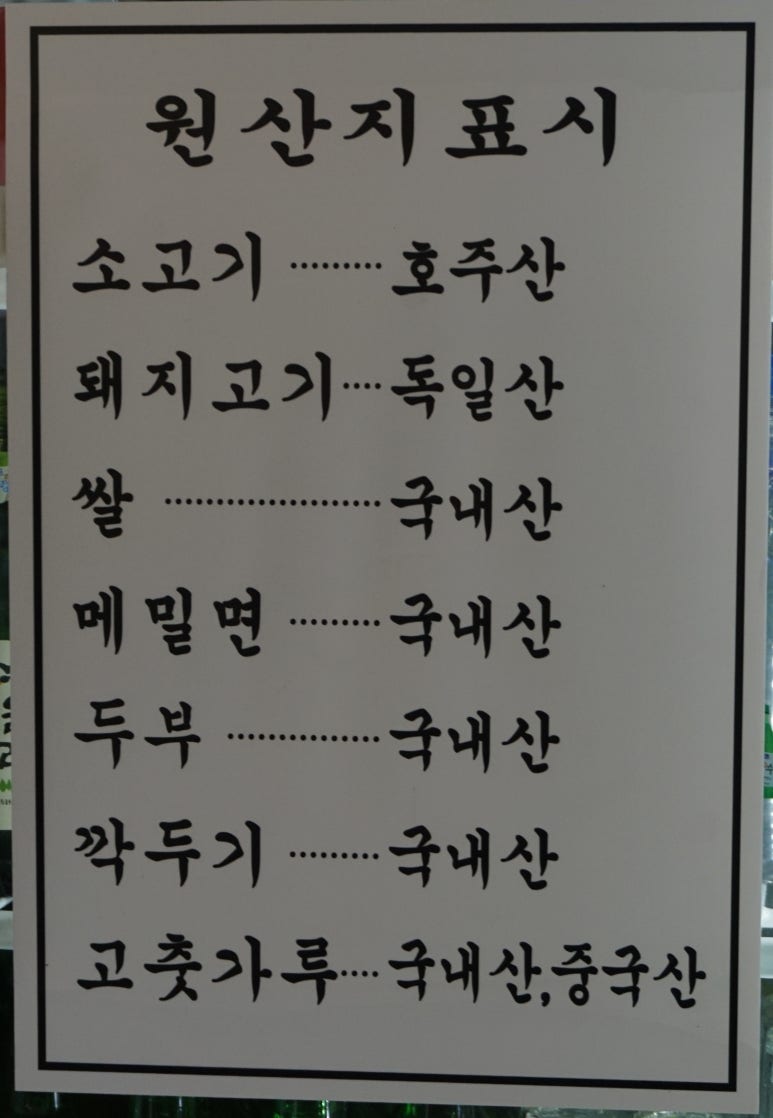 원산지표시
소고기 ......... 호주산
돼지고기 .... 독일산
쌀 ..................... 국내산
메밀면 ......... 국내산
두부 ............... 국내산
깍두기 ......... 국내산
고춧가루 .... 국내산,중국산